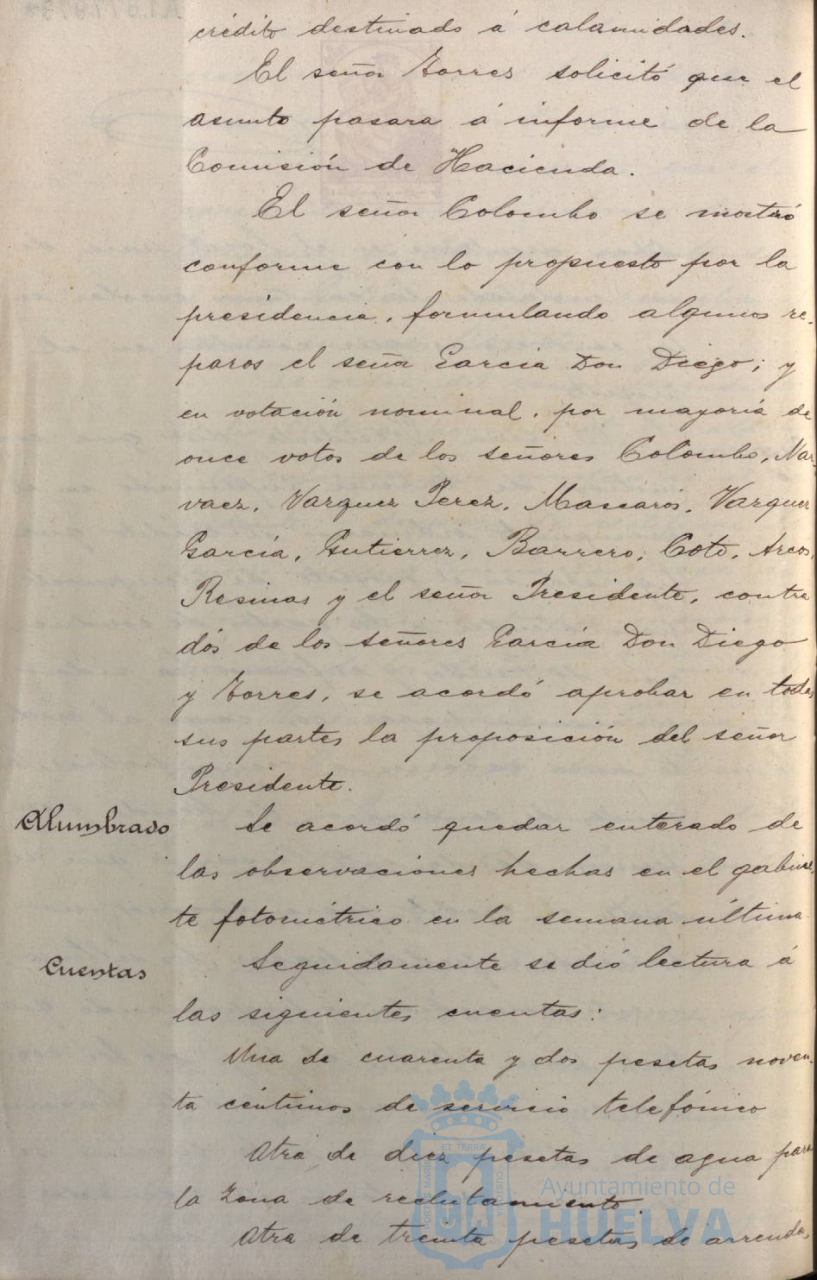 crédito destinado á calamidades.
El señor Torres solicitó que el
asunto pasara á informe de la
Comisión de Hacienda.
El señor Colombo se mostró
conforme con lo propuesto por la
presidencia, formulando algunos re-
paros el señor García Don Diego; y
en votación nominal, por mayoría de
once votos de los señores Colombo, Nar-
vaez, Vazquez Perez, Mascarós, Vazquez
García, Gutierrez, Barrero, Coto, Arcos,
Resinas y el señor Presidente, contra
dós de los señores García Don Diego
y Torres, se acordó aprobar en todas
sus partes la proposición del señor
Presidente.
Alumbrado
Se acordó quedar enterado de
las observaciones hechas en el gabine-
te fotométrico en la semana última
Cuentas
Seguidamente se dió lectura á
las siguientes cuentas:
Una de cuarenta y dos pesetas noven-
ta céntimos de servicio telefónico
Otra de diez pesetas de agua para
la zona de reclutamiento.
Otra de treinta pesetas de arrenda
Ayuntamiento de
HUELVA